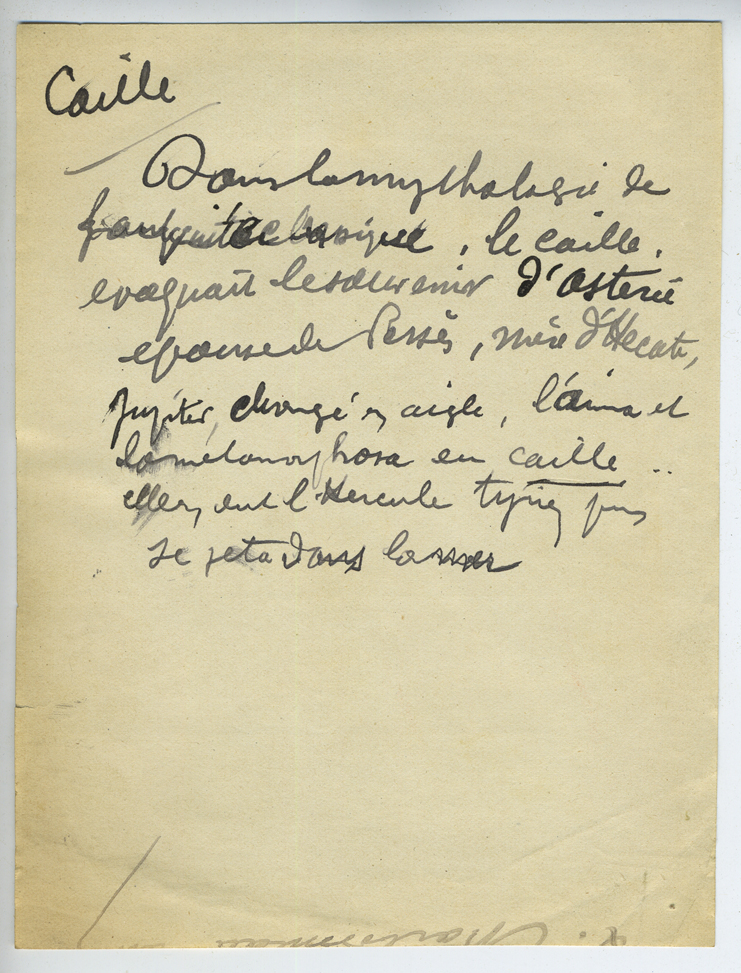 Caille
Dans la mythologie de
l'antiquité classique, la caille,
evoquait le souvenir d'Asterié
epouse de Persès, mère d'Hecate,
Jupiter, changé en aigle, l'aima et
la métamorphosa en caille ..
elle en eut l'Hercule tyrien puis
se jeta dans la mer